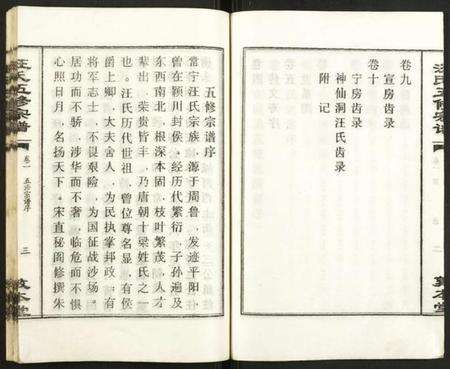 汪氏五修宗谱
卷九
宣房齿录
宁房齿录
卷十
神仙洞汪氏齿录
附记
敦本堂
五修宗谱序
常宁汪氏宗族，源于周鲁，发迹平阳，
曾在颍川封侯，经历代繁衍，子孙遍及
东西南北，根深本固，枝叶繁茂，人才
辈出，荣贵皆丰，乃唐朝十梁姓氏之一
也。汪氏历代世祖，曾位尊名显，有侯
爵上卿，大夫舍人，为民执掌邦政，有
将军志士，不畏艰险，为国征战沙场，
居功而不骄，涉华而不奢，临危而不惧
心照日月，名扬天下。宋直秘阁修撰朱
汪氏五修宗谱
卷一
五修宗谱序
三
敦本堂